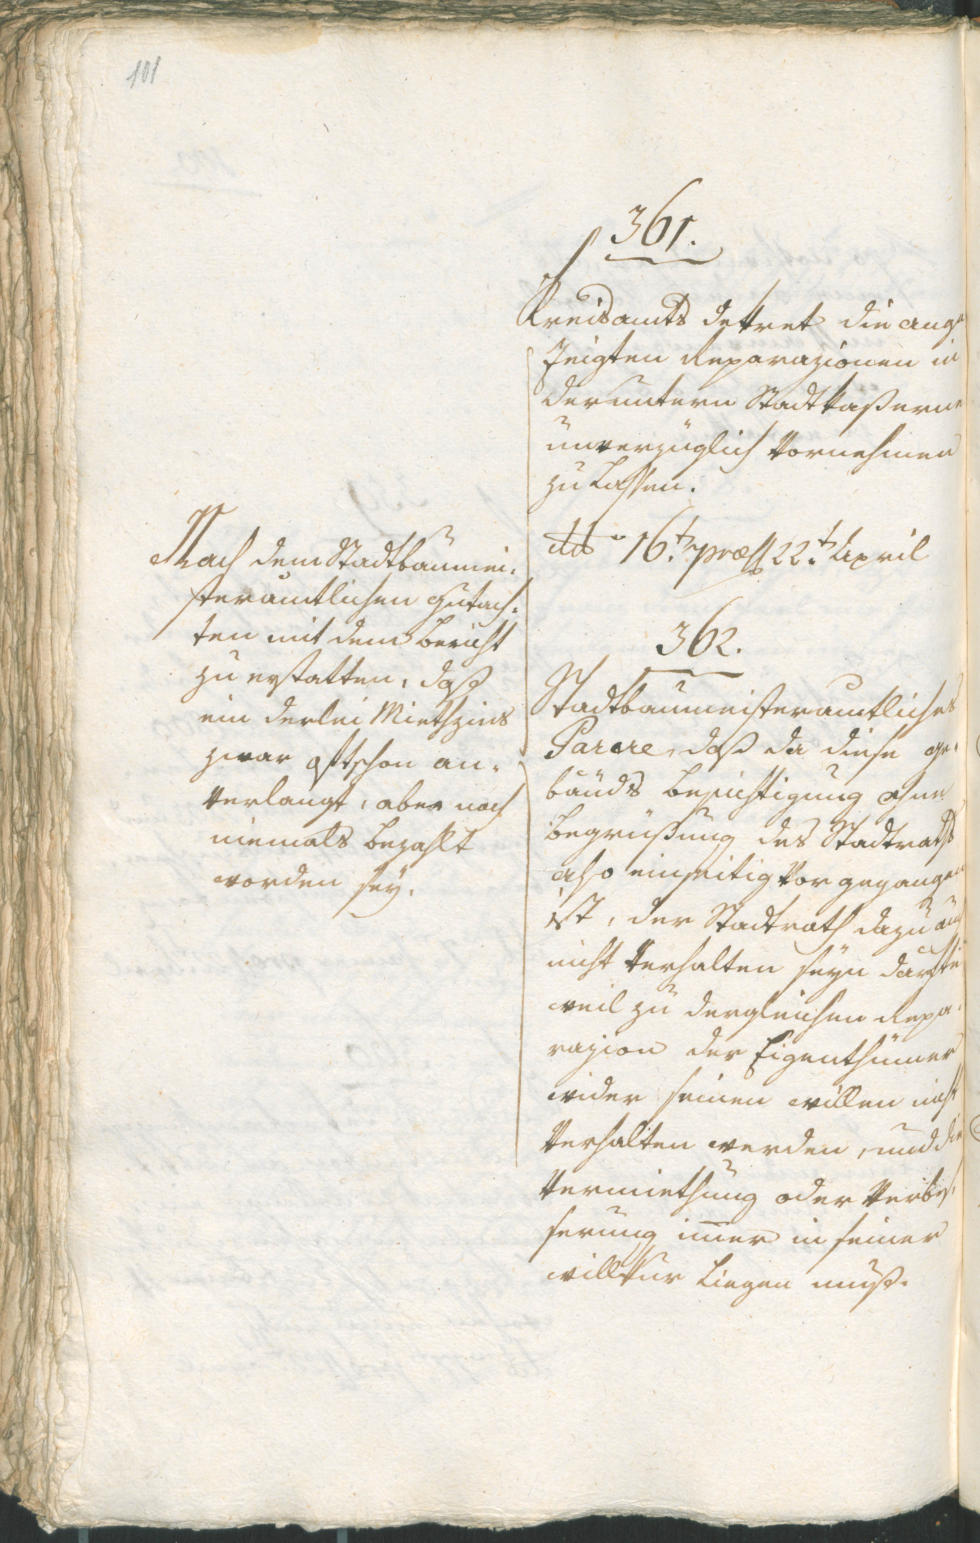 101
361.
Kreisamts dekret die ange
zeigten Reparazionen in
der untern Stadtkaßerne
unverzüglich vornehmen
zu lassen.
ddo 16t præs 22t April
Nach dem Stadtbaumei-
steramtlichen Gutach-
ten mit dem Bericht
zu erstatten, daß
ein derlei Miethzins
zwar oftschon an-
verlangt, aber noch
niemals bezahlt
worden sey.
362.
Stadtbaumeisteramtliches
Parere, daß da diese ge-
bäuds besichtigung ohne
begrüßung des Stadtraths
also einseitig vor gegangen
ist, der Stadtrath dazu auch
nicht verhalten seyn dürfte
weil zu dergleichen Repa-
razion der Eigenthümer
wider seinen willen nicht
verhalten werden, und die
vermiethung oder verbes-
serung imer in seiner
willkur liegen muß.